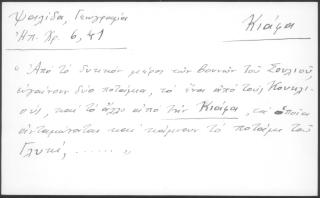 Ψαλίδα, Γεωγραφία
Ηπ. Χρ. 6, 41
Κιάφα
"Από το δυτικόν μέρος των βουνών του Σουλιού
εβγαίνουν δύο ποτάμια, το ένα από τους
και το άλλο από την Κιάφα, τα οποία
ανταμώνονται και κάμνουν το ποτάμι του
Γλυκύ, ........ "